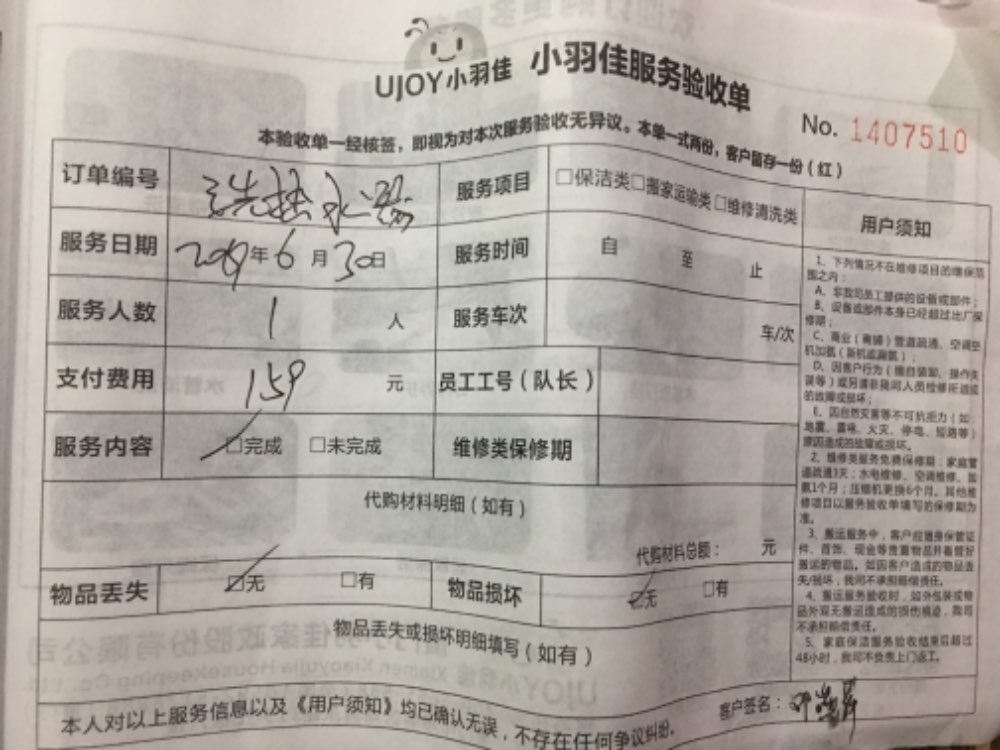 UJOY小羽佳 小羽佳服务验收单
No. 1407510
本验收单一经核签，即视为对本次服务验收无异议。本单一式两份，客户留存一份（红）
订单编号 洗热水器 服务项目 □保洁类□搬家运输类□维修清洗类
服务日期 2019年6月30日 服务时间 自 至 止
服务人数 1 人 服务车次 车/次
支付费用 159 元 员工工号（队长）
服务内容 □完成 □未完成 维修类保修期
代购材料明细（如有）
代购材料总额： 元
物品丢失 □无 □有 物品损坏 □无 □有
物品丢失或损坏明细填写（如有）
本人对以上服务信息以及《用户须知》均已确认无误，不存在任何争议纠纷。
客户签名：
用户须知
1、下列情况不在维修项目的维保范
围之内：
A、非我司员工提供的设备或部件；
B、设备或部件本身已经超过出厂保
修期；
C、商业（商铺）管道疏通、空调空
机加氨（新机或漏氨）；
D、因客户行为（擅自装卸、操作失
误等）或另请非我司人员检修所造成
的故障或损坏；
E、因自然灾害等不可抗拒力（如
地震、雷电、火灾、停电、短路等）
原因造成的故障或损坏。
2、维修类服务免费保修期：家庭管
道疏通3天；水电维修、空调维修、加
氨1个月；压缩机更换6个月。其他维
修项目以服务验收单填写的保修期为
准。
3、搬运服务中，客户应随身保管证
件、首饰、现金等贵重物品并看管好
搬运的物品。如因客户造成的物品丢
失/损坏，我司不承担赔偿责任。
4、搬运服务验收时，如外包装或物
品外观无搬运造成的损伤痕迹，我司
不承担赔偿责任。
5、家庭保洁服务验收结束后超过
48小时，我司不负责上门返工。